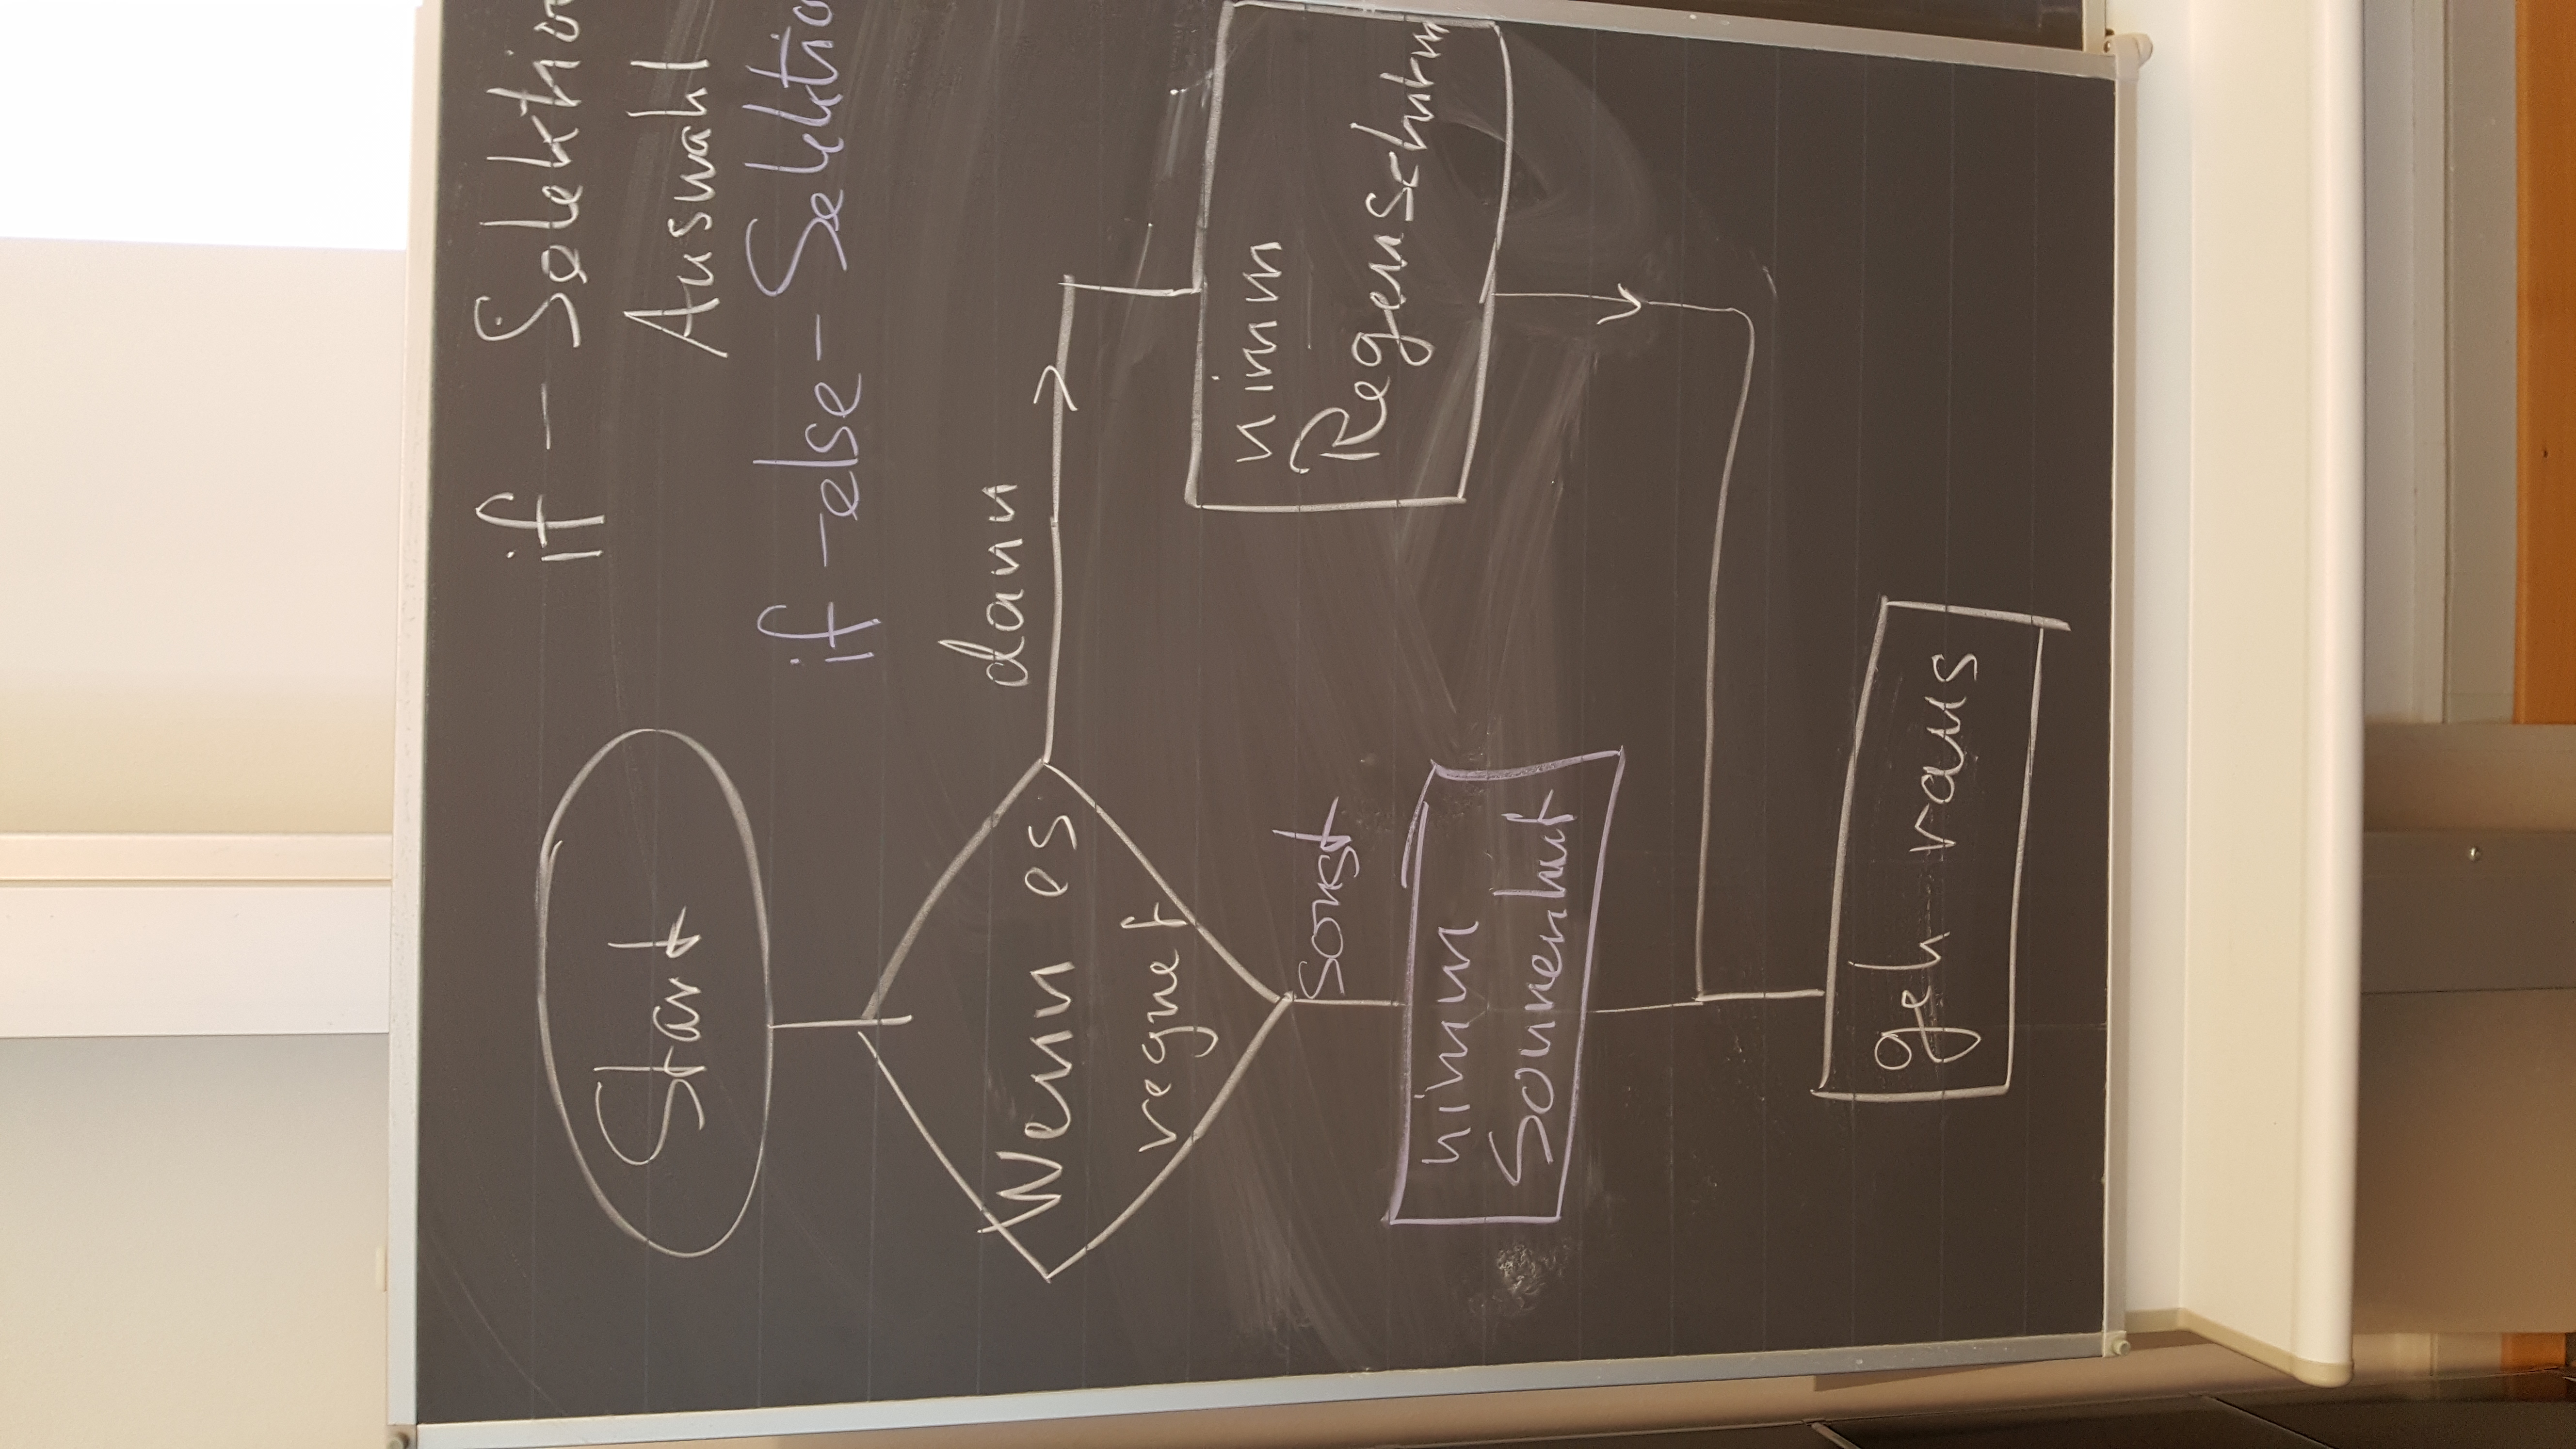 if - Selektio
Auswahl
if - else - Selektio
Start
dann
Wenn es
regnet
nimm
Regenschirm
sonst
nimm
Sonnenhut
geh raus